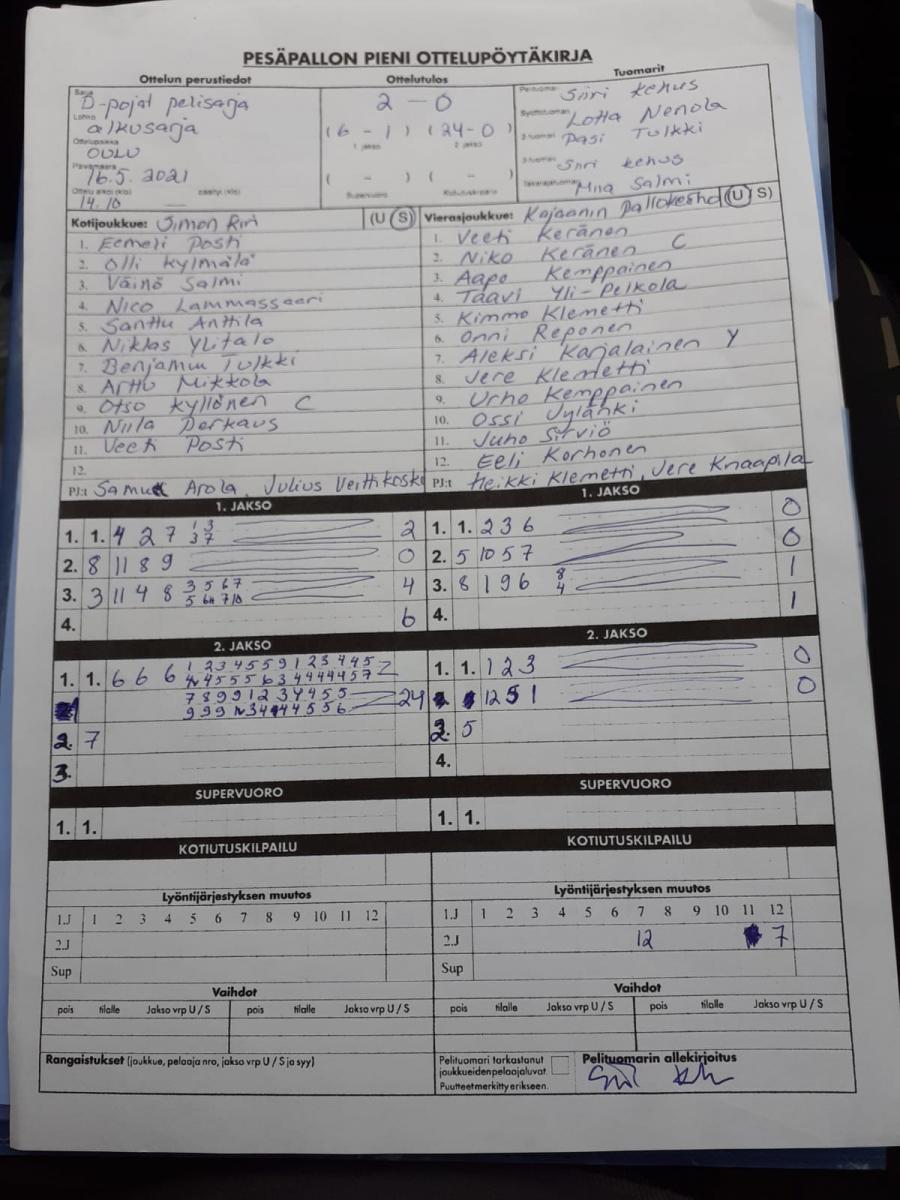 PESÄPALLON PIENI OTTELUPÖYTÄKIRJA
Ottelun perustiedot
Sarja
D-pojat pelisarja
Lohko
alkusarja
Ottelupaikka
OULU
Päivämäärä
16.5. 2021
Ottelu alkoi (klo) päättyi (klo)
14.10
Ottelutulos
2 - 0
(6 - 1) (24-0)
1. jakso 2. jakso
( - ) ( - )
Supervuoro Kotiutuskilpailu
Tuomarit
Pelituomari Siiri Kehus
Syöttötuomari Lotta Nenola
2-tuomari Pasi Tulkki
3-tuomari Siiri Kehus
Takarajatuomari Salmi
Kotijoukkue: (U S)
1. Eemeli Posti
2. Olli Kylmälä
3. Väinö Salmi
4. Nico Lammassaari
5. Santtu Anttila
6. Niklas Ylitalo
7. Benjamin Tulkki
8. Arttu Mikkola
9. Otso Kyllönen C
10. Niila
11. Veeti Posti
12.
PJ:t Arola, Julius
Vierasjoukkue: Kajaanin (U S)
1. Veeti Keränen
2. Niko Keränen C
3. Aapo Kemppainen
4. Taavi Yli-Pelkola
5. Kimmo Klemetti
6. Onni Reponen
7. Aleksi Karjalainen Y
8. Jere Klemetti
9. Urho Kemppainen
10. Ossi
11. Juho Sirviö
12. Eeli Korhonen
PJ:t Heikki Klemetti, Jere Knaapila
1. JAKSO
1. 1. 4 2 7 1 3 2
3 7
2. 8 11 8 9 0
3. 3 11 4 8 3 5 6 7 4
4. 6
1. JAKSO
1. 1. 2 3 6 0
2. 5 10 5 7 0
3. 8 1 9 6 8 1
4
4. 1
2. JAKSO
1. 1. 6 6 6 1 2 3 4 5 5 9 1 2 3 4 4 5
7 8 9 9 1 2 3 4 4 5 5 24
2. 7
3.
2. JAKSO
1. 1. 1 2 3 0
12 5 1 0
3. 5
4.
SUPERVUORO
1. 1.
SUPERVUORO
1. 1.
KOTIUTUSKILPAILU
KOTIUTUSKILPAILU
Lyöntijärjestyksen muutos
1.J 1 2 3 4 5 6 7 8 9 10 11 12
2.J
Sup
Lyöntijärjestyksen muutos
1.J 1 2 3 4 5 6 7 8 9 10 11 12
2.J 12 7
Sup
Vaihdot
pois tilalle Jakso vrp U / S pois tilalle Jakso vrp U / S
Vaihdot
pois tilalle Jakso vrp U / S pois tilalle Jakso vrp U / S
Rangaistukset (joukkue, pelaaja nro, jakso vrp U / S ja syy)
Pelituomari tarkastanut
joukkueiden pelaajaluvat
Puutteet merkitty erikseen.
Pelituomarin allekirjoitus